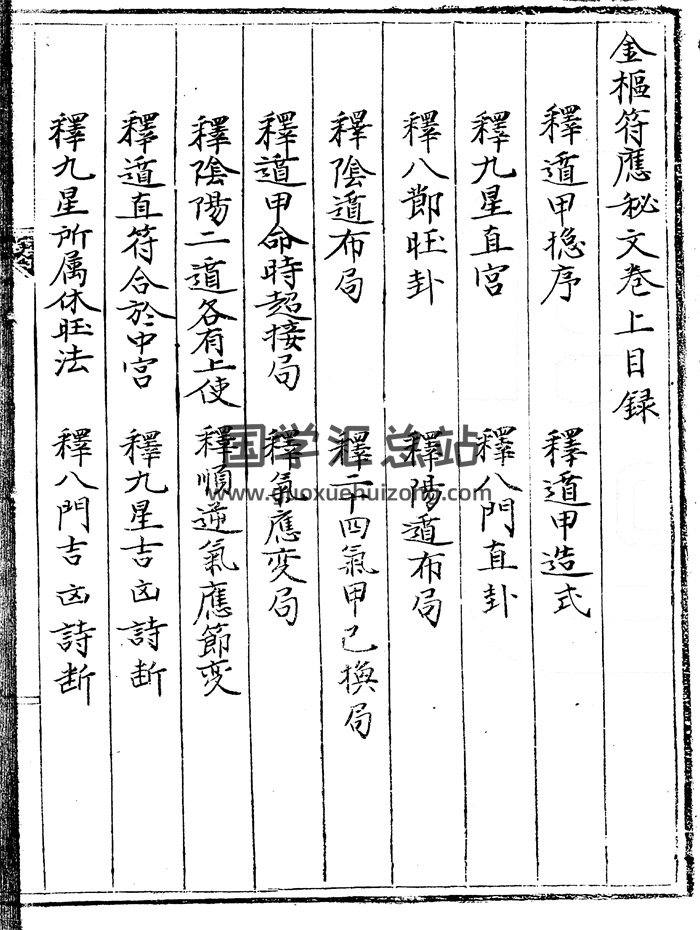 金樞符應秘文巻上目録
釋遁甲揔序　釋遁甲造式
釋九星直宫　釋八門直卦
釋八節旺卦　釋陽遁布局
釋陰遁布局　釋二十四氣甲己換局
釋遁甲命時超接局　釋氣應变局
釋陰陽二遁各有上使　釋順逆氣應節变
釋遁直符合於中宫　釋九星吉凶詩断
釋九星所属休旺法　釋八門吉凶詩断
国学汇总站
www.guoxuehuizong.com